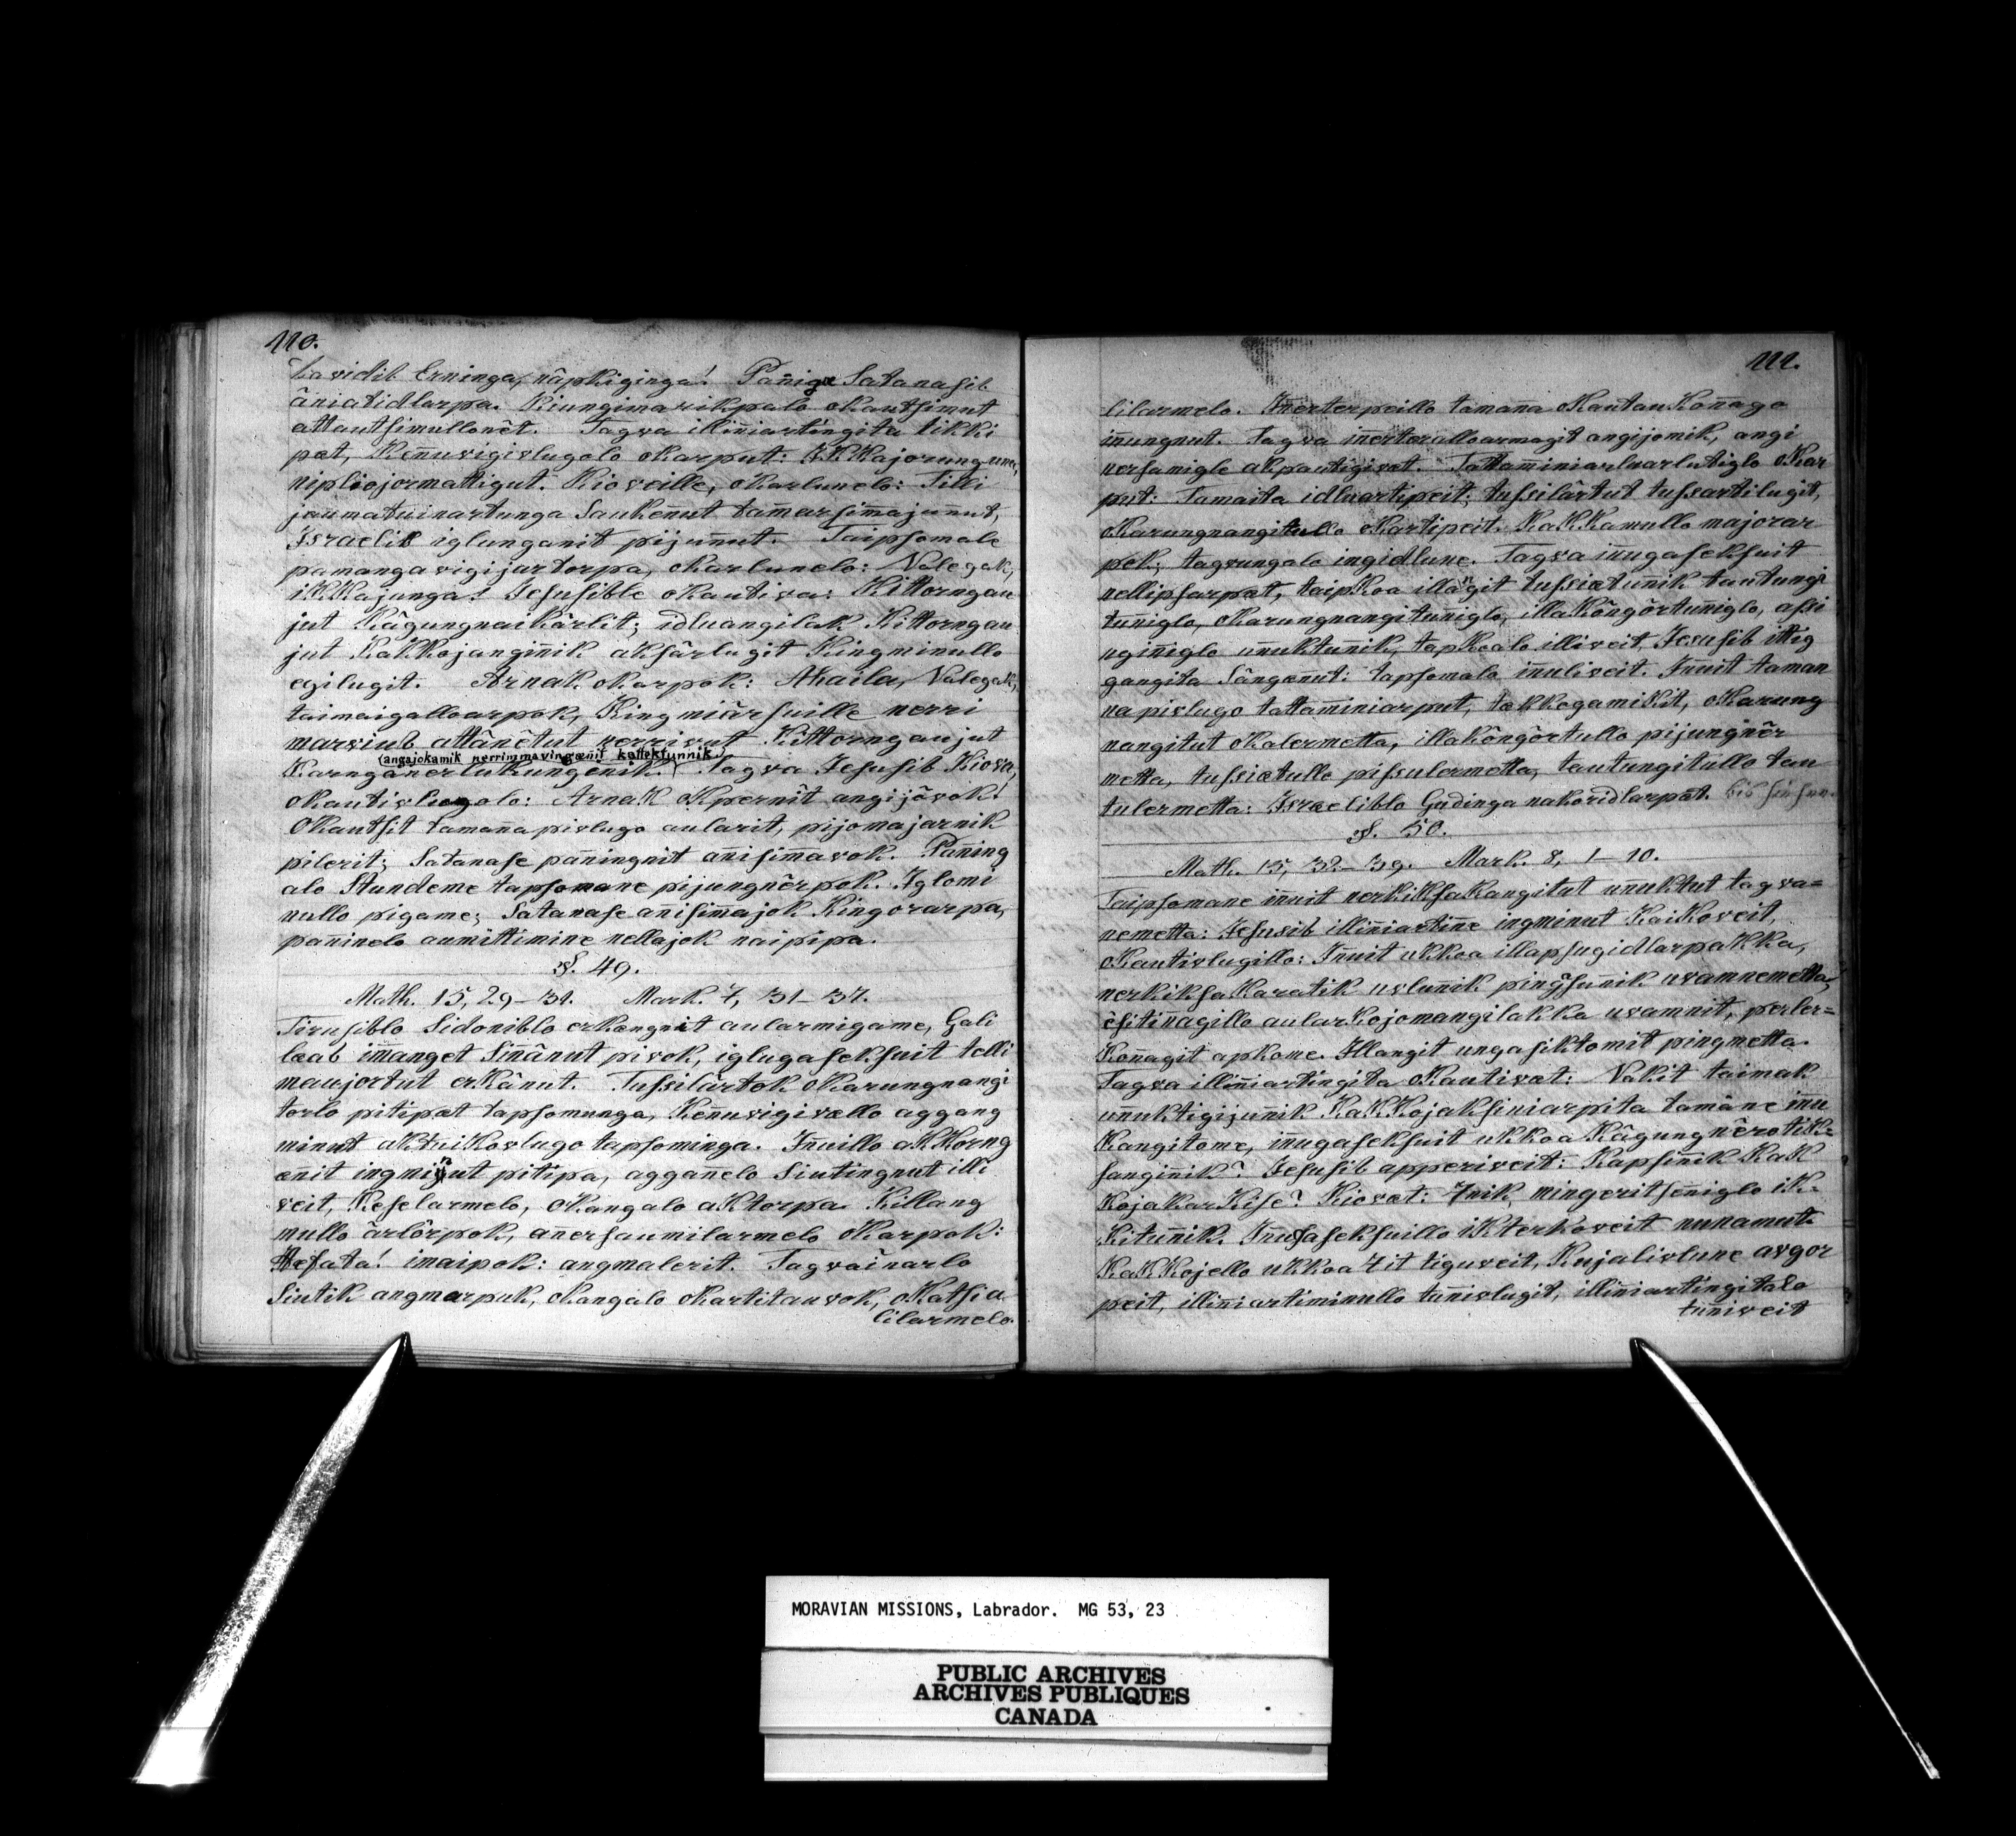 110.
Davidib Erninga, nâpkiginga! Pañiga Satanasib
âniatidlarpa. Kiungimarikpalo oKautsimut
attautsimullonêt. Tagva illiñiartingita tikki
pæt, Keñuvigivlugolo oKarput: iKKajorungune,
nipliojormattigut. Kioveille, oKarlunelo: Tilli
jaumatuinartunga Saukeñut tamarsimajuñut,
Israelib iglunganit pijuñut. Taipsomale
panangavigijartorpa, oKarlunelo: Nalegak,
iKKajunga! Jesusible oKautiva: Kittorngau
jut Kâgungnaikârlit; idluangilak Kittorngau
jut KaKKojanginik aksârlugit Kingminullo
egilugit. Arnak oKarpok: Ahaila, Nalegak,
taimaigalloarpok, Kingmiârsuille nerri
marviub attânêtut nerrivut Kittorngaujut
(angajokamik nerrimmavingænit kattektunnik.)
Karnganerlukungenik. Tagva Jesusib Kiova,
oKautivlugolo: Arnak Opernît angijôvok!
OKautsit tamaña pivlugo aularit, pijomajarnik
pilerit; Satanase pañingnit añisimavok. Pañing
alo Stundeme tapsomane pijungnêrpok. Iglomi
nullo pigame; Satanase añisimajok Kingorarpa,
pañinelo aumittimine nellajok naipipa.
§. 49.
Math. 15, 29-31. Mark. 7, 31-37.
Tirusiblo Sidoniblo erKængnit aularmigame, Gali
læab imanget Siñânut pivok, iglugaseksuit telli
maujortut erKânut. Tussilârtok oKarungnangi
torlo pitipæt tapsomunga, Keñuvigivællo aggang
minut aktuiKovlugo tapsominga. Iñuillo aKKorng
ænit ingminut pitipa, aggañelo Siutingnut illi
veit, Keselarmelo, oKangalo aktorpa. Killang
mullo ârlôrpok, añersaumilarmelo oKarpok:
Hefata! imaipok: angmalerit. Tagvainarlo
Siutik angmarpuk, oKangalo oKartitauvok, oKatsia
lilarmelo.
111.
lilarmelo. Iñerterpeillo tamaña oKautauKoñago
iñungnut. Tagva iñerteralloarmagit angijomik, angi
nersamigle akpautigivæt. Tattaminiarluarlutiglo oKar
put: Tamaita idluartipeit; tussilârtut tussartilugit,
oKarungnangitullo oKartipeit. KaKKamullo majorar
pok; tagvungalo ingidlune. Tagva iñugaseksuit
nellipsarpæt, taipkoa illagit tussiætuñik tautungi
tuñiglo, oKarungnangituñiglo, illaKôngôrtuñiglo, assi
nginiglo uñuktuñik, tapkoalo illiveit, Jesusib ittig
gangita Sângænut: tapsomalo iñuliveit. Iñuit taman
na pivlugo tattaminiarput, takkegamikit, oKarung
nangitut oKalermetta, illakôngôrtullo pijungnêr
metta, tussiætullo pissulermetta, tautungitullo tau
tulermetta: Israeliblo Gudinga nakoridlarpæt.
§. 50.
Math. 15, 32-39. Mark. 8, 1-10.
Taipsomane iñuit nerkiksaKangitut uñuktut tagva=
nemetta: Jesusib illiñiartiñe ingminut KaiKoveit,
oKautivlugillo: Iñuit ukkoa illapsugidlarpaKKa,
nerkiksaKaratik uvluñik pingasuñik uvamnemetta,
êsitinagillo aularKojomangilakka uvamnit, perler=
Koñagit apkome. Illangit ungasiktomit pingmetta.
Tagva illiñiartingita oKautivæt: Nakit taimak
uñuktigijuñik KaKKojaksiniarpita tamâne iñu
Kangitome, iñugaseksuit ukkoa Kâgungnêrotik=
sanginik? Jesusib apperiveit: Kapsinik KaK
KojaKarKise? Kiovæt: 7nik, mingeritseniglo iK=
Kituñik. Iñugaseksuillo ikterKoveit nunamut.
KaKKojello ukkoa 7it tiguveit, Kujalivlune avgor
peit, illiñiartiminullo tuñivlugit, illiñiartingitalo
tuñiveit
MORAVIAN MISSIONS, Labrador. MG 53, 23
PUBLIC ARCHIVES
ARCHIVES PUBLIQUES
CANADA